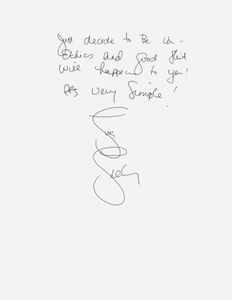 Just decide to Be in -
Ethics and good
will happen to you!
very Simple!